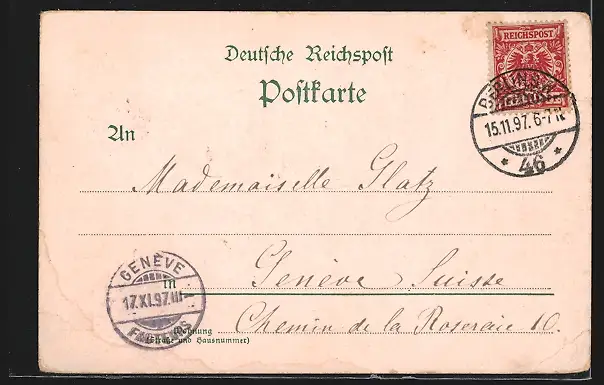 Deutsche Reichspost
Postkarte
REICHSPOST
BERLIN S.W.
15.11.97. 6-7N.
* 46 *
An
Mademoiselle Glatz
in
Genève Suisse
Wohnung
(Straße und Hausnummer)
Chemin de la Roseraie 10.
GENÈVE
17.XI.97.III—